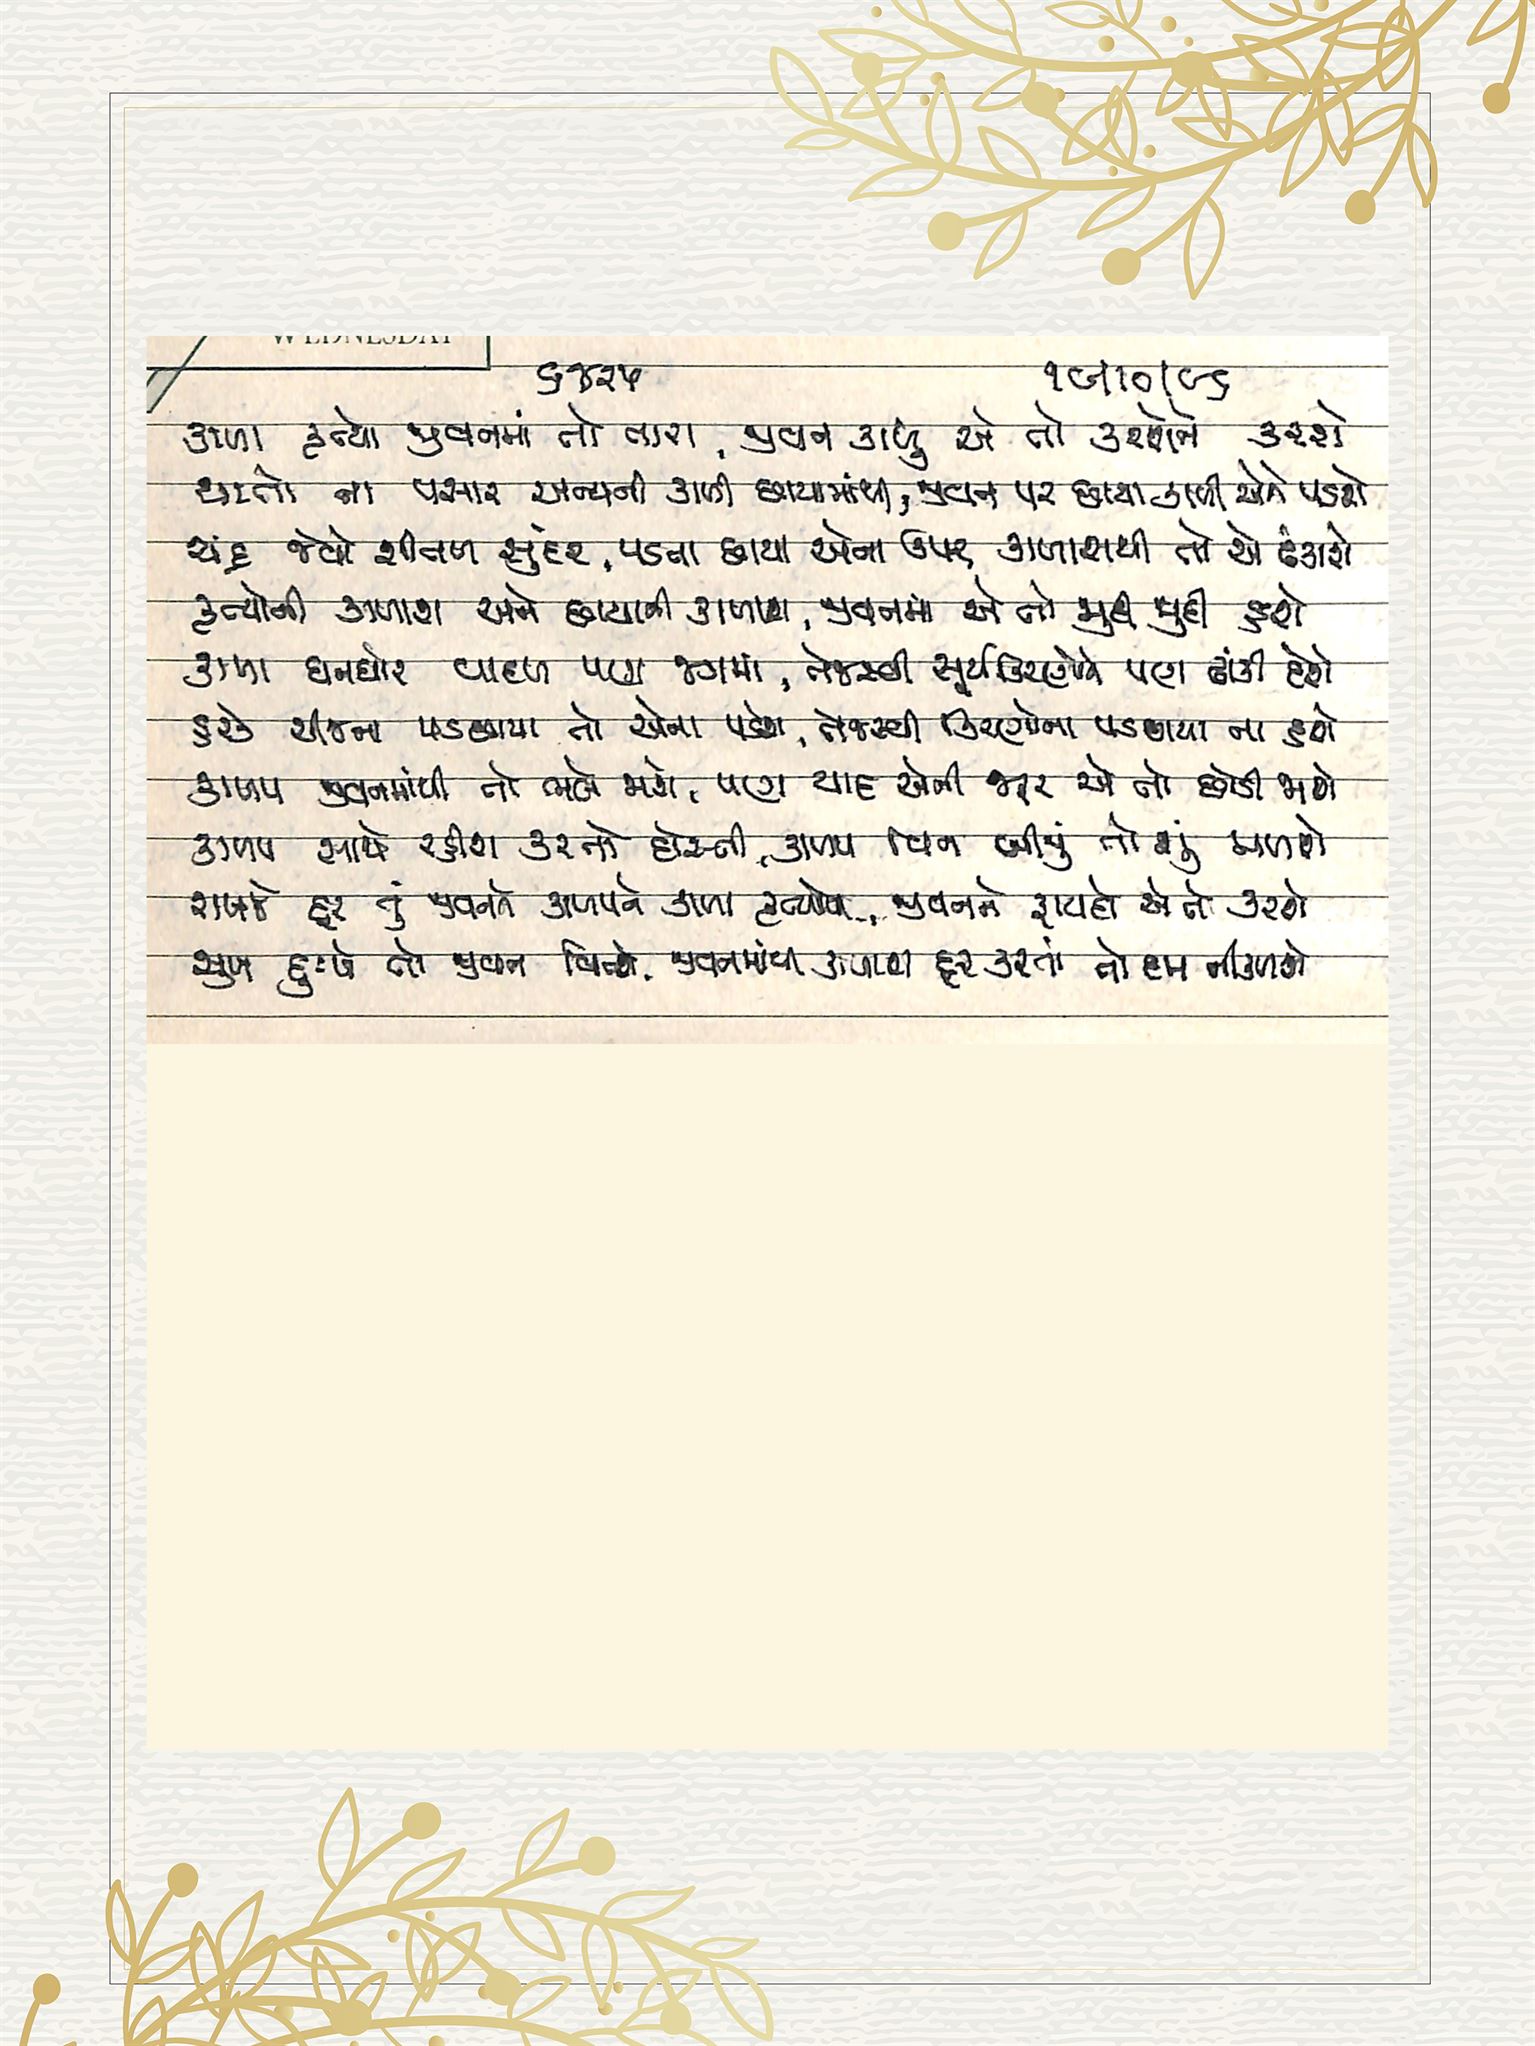 WEDNESDAY
૬૪૨૫ ૧૯/૧૦/૯૬
કાળા કૃત્યો જીવનમાં તો તારા, જીવન કાળું એ તો કરશેને કરશે
થાતો ના પસાર અન્યની કાળી છાયામાંથી, જીવન પર છાયા કાળી એને પડશે
ચંદ્ર જેવો શીતળ સુંદર, પડતા છાયા એના ઉપર કાળાશથી તો એ ઢંકાશે
કૃત્યોની કાળાશ અને છાયાની કાળાશ, જીવનમાં એ તો જુદી જુદી હશે
કાળા ઘનઘોર વાદળ પણ જગમાં, તેજસ્વી સૂર્યકિરણોને પણ ઢાંકી દેશે
હરેક ચીજના પડછાયા તો એના પડશે, તેજસ્વી કિરણોના પડછાયા ના હશે
કાળપ જીવનમાંથી તો ભલે જાશે, પણ યાદ એની જરૂર એ તો છોડી જાશે
કાળપ સાથે રહીશ કરતો દોસ્તી, કાળપ વિના બીજું તો શું મળશે
રાખજે દૂર તું જીવનને કાળપને કાળા કૃત્યોથી, જીવનને ફાયદો એ તો કરશે
સુખ દુઃખે તો જીવન વિત્યું, જીવનમાંથી કાળાશ દૂર કરતાં તો દમ નીકળશે